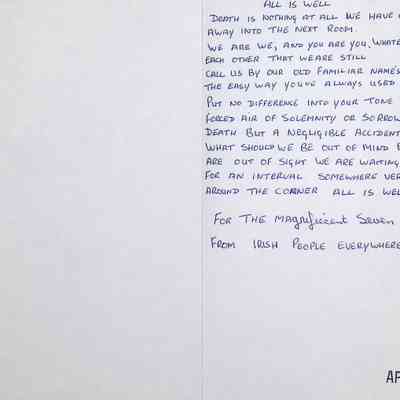 ALL IS WELL
DEATH IS NOTHING AT ALL WE HAVE
AWAY INTO THE NEXT ROOM.
WE ARE WE, AND YOU ARE YOU. WHATE
EACH OTHER THAT WE ARE STILL
CALL US BY OUR OLD FAMILIAR NAME'S
THE EASY WAY YOU'VE ALWAYS USED
PUT NO DIFFERENCE INTO YOUR TONE
FORCED AIR OF SOLEMNITY OR SORROW
DEATH BUT A NEGLIGIBLE ACCIDENT
WHAT SHOULD WE BE OUT OF MIND
ARE OUT OF SIGHT WE ARE WAITING
FOR AN INTERVAL SOMEWHERE VER
AROUND THE CORNER ALL IS WEL
FOR THE MAGNIFICENT SEVEN
FROM IRISH PEOPLE EVERYWHERE
AP